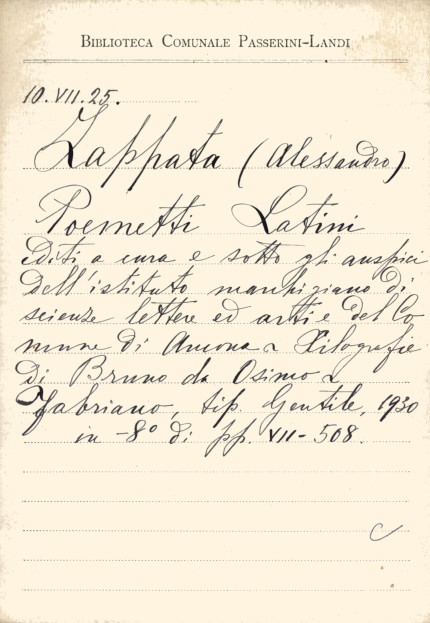 BIBLIOTECA COMUNALE PASSERINI-LANDI
10.VII.25.
Zappata (Alessandro)
Poemetti Latini
editi a cura e sotto gli auspici
dell'istituto marchigiano di
scienze lettere ed arti e del Co
mune di Ancona - Xilografie
di Bruno da Osimo -
Fabriano, tip. Gentile, 1930
in -8º di pp. VII-508.
C